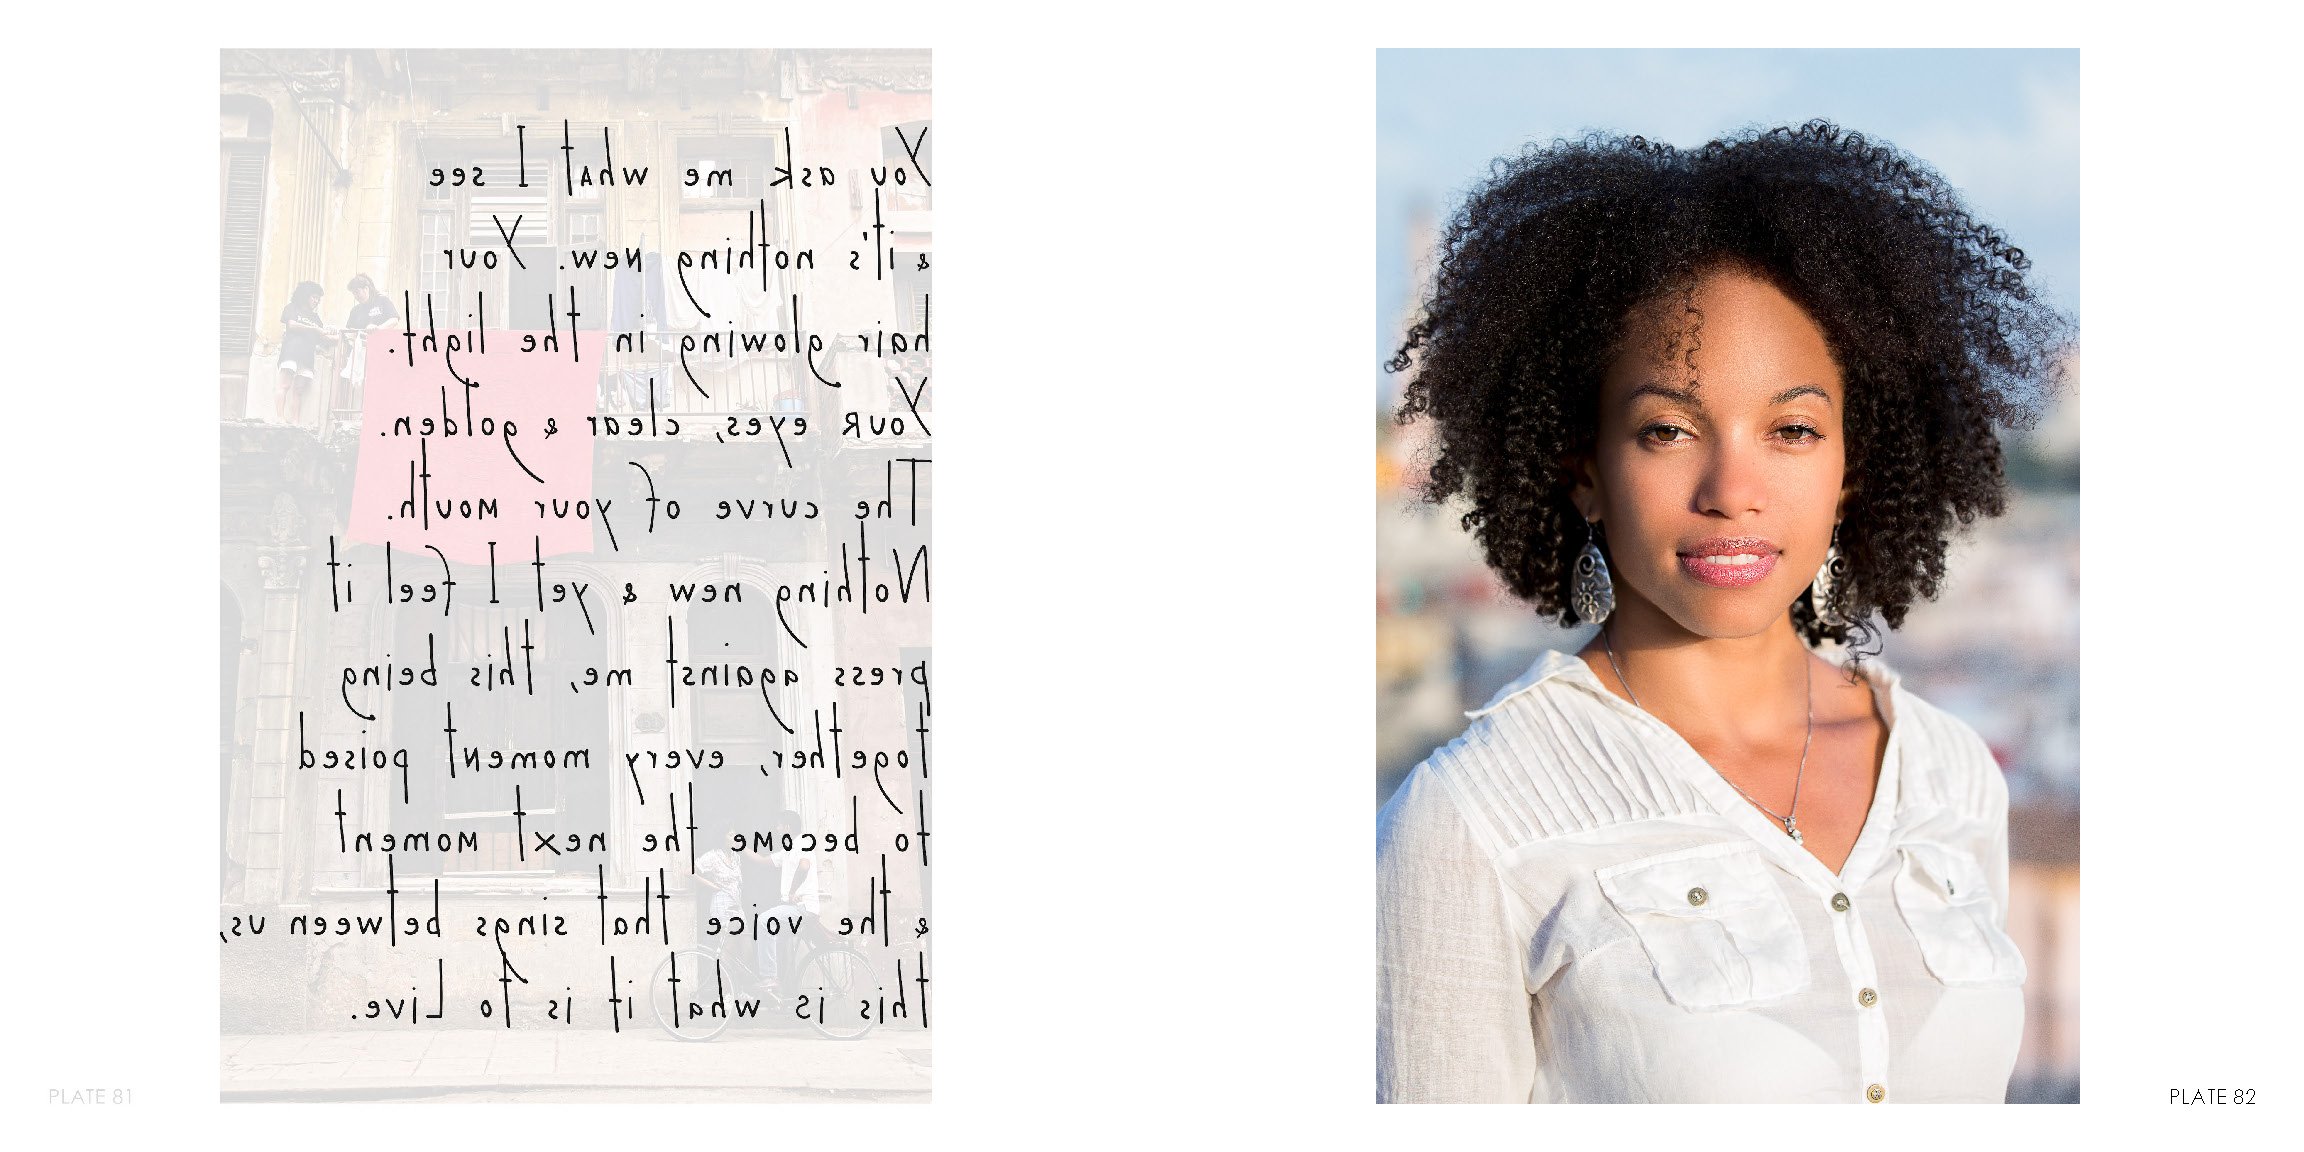 You ask me what I see
& it's nothing new. Your
hair glowing in the light.
Your eyes, clear & golden.
The curve of your mouth.
Nothing new & yet I feel it
press against me, this being
together, every moment poised
to become the next moment
& the voice that sings between us,
this is what it is to Live.
PLATE 81
PLATE 82